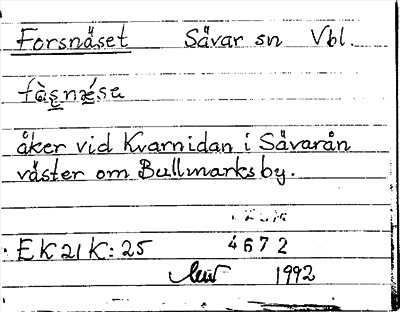 Forsnäset Sävar sn Vbl.
fàsnǽsa
åker vid Kvarnidan i Sävarån
väster om Bullmarks by.
EK 21 K: 25 4672
1992